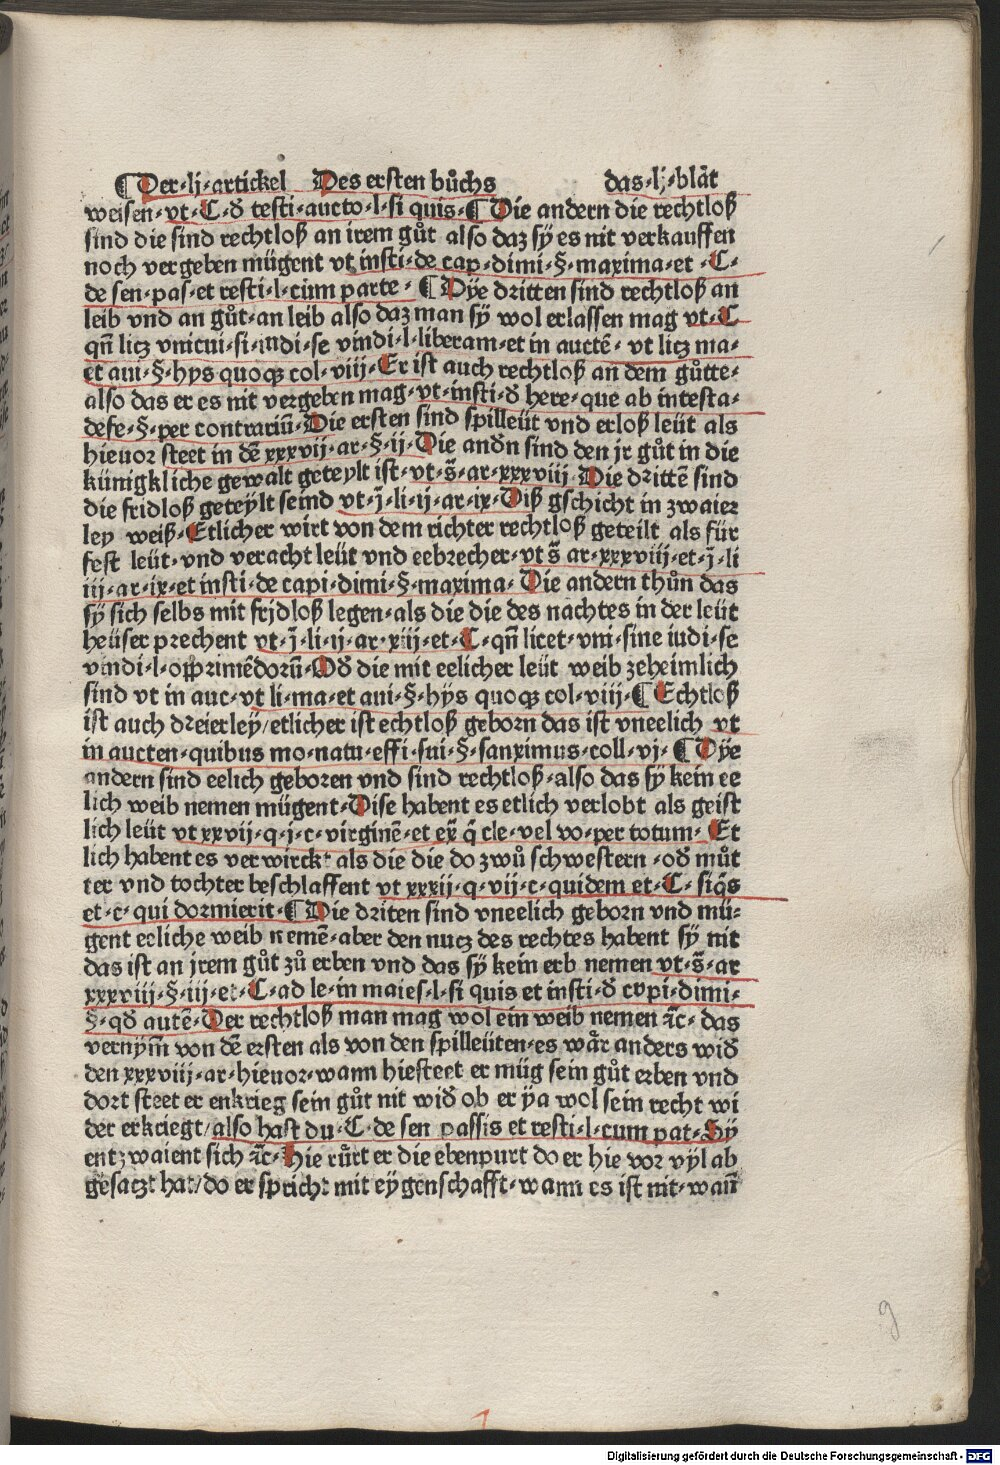 ¶ Der·lj·artickel Des ersten bůchs das·lj·blåt
weisen·vt·C·ð testi·aucto·l·si quis·¶ Die andern die rechtloß
sind die sind rechtloß an irem gůt also daz sÿ es nit verkauffen
noch vergeben mügent vt insti·de cap·dimi·§·maxima·et·C·
de sen·pas·et resti·l·cum parte·¶ Dÿe dritten sind rechtloß an
leib vnd an gůt·an leib also daz man sÿ wol erlassen mag vt·C
qñ licz vnicui·si·iudi·se vindi·l·liberam·et in auctē·vt licz ma⸗
et aui·§·hys quoqꝫ col·viij·Er ist auch rechtloß an dem gůtte·
also das er es nit vergeben mag·vt·insti·ð here·que ab intesta⸗
defe·§·per contrariū·Die ersten sind spilleüt vnd erloß leüt als
hieuor steet in dē xxxvij·ar·§·ij·Die anðn sind den jr gůt in die
künigkliche gewalt geteylt ist·vt·s̄·ar·xxxviij·Die drittē sind
die fridloß geteÿlt seind vt·j̄·li·ij·ar·ix·Diß gschicht in zwaier
ley weiß·Etlicher wirt von dem richter rechtloß geteilt als für
fest leüt·vnd veracht leüt vnd eebrecher·vt s̄ ar·xxxviij·et·j̄·li
iij·ar·ix·et insti·de capi·dimi·§·maxima·Die andern thůn das
sÿ sich selbs mit frjdloß legen·als die die des nachtes in der leüt
heüser prechent vt·j̄·li·ij·ar·xiij·et·C·qñ licet·vni·sine iudi·se
vindi·l·opprimēdorū·Oð die mit eelicher leüt weib zeheimlich
sind vt in auc·vt li·ma·et aui·§·hÿs quoqꝫ col·viij·¶ Echtloß
ist auch dreierley/etlicher ist echtloß geborn das ist vneelich vt
in aucten·quibus mo·natu·effi·sui·§·sanximus·coll·vj·¶ Dÿe
andern sind eelich geboren vnd sind rechtloß·also das sÿ kein ee
lich weib nemen mügent·Dise habent es etlich verlobt als geist
lich leüt vt xxvij·q·j·c·virginē·et ex̄ q̄ cle·vel vo·per totum·Et
lich habent es verwirckt als die die do zwů schwestern·oð můt
ter vnd tochter beschlaffent vt xxxij·q·vij·c·quidem et·C·siq̄s
et·c·qui dormierit·¶ Die driten sind vneelich geborn vnd mü⸗
gent eeliche weib nemē·aber den nucz des rechtes habent sÿ nit
das ist an jrem gůt zů erben vnd das sÿ kein erb nemen vt·s̄·ar
xxxviij·§·iij·et·C·ad le·in maies·l·si quis et insti·ð capi·dimi·
§·qð autē·Der rechtloß man mag wol ein weib nemen ꝛc̄·das
vernÿm̄ von dē ersten als von den spilleüten·es wår anders wið
den xxxviij·ar·hieuor·wann hiesteet er müg sein gůt erben vnd
dort steet er enkrieg sein gůt nit wið ob er ÿa wol sein recht wi
der erkriegt/also hast du·C·de sen passis et resti·l·cum pat·Sÿ
entzwaient sich ꝛc̄·Hie růrt er die ebenpurt do er hie vor vÿl ab
gesaczt hat/do er spricht mit eÿgenschafft·wann es ist nit·wañ
g
Digitalisierung gefördert durch die Deutsche Forschungsgemeinschaft - DFG